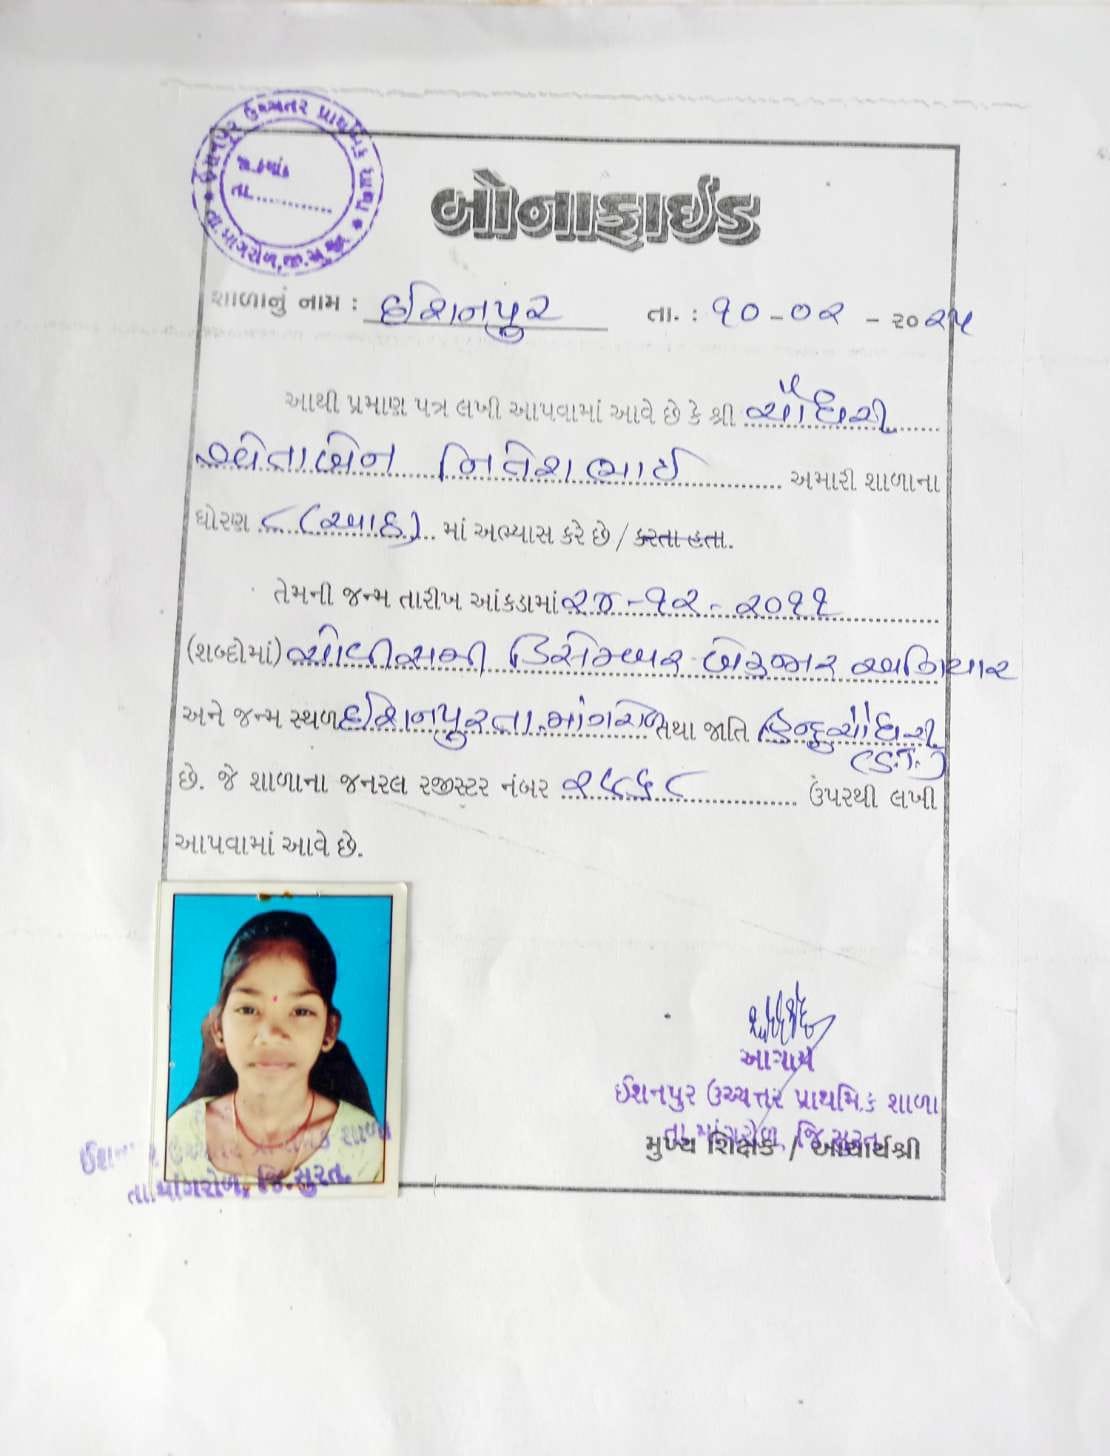 ઈશનપુર ઉચ્ચતર પ્રાથમિક શાળા
જા.ક્રમાંક
તા.............
તા.માંગરોળ,જી.સુરત
બોનાફાઈડ
શાળાનું નામ : ઈશનપુર તા. : ૧૦ -૦૨ - ૨૦૨૫
આથી પ્રમાણ પત્ર લખી આપવામાં આવે છે કે શ્રી ચૌધરી
શ્વેતાબેન નિતેશભાઈ અમારી શાળાના
ધોરણ ૮ (આઠ) માં અભ્યાસ કરે છે / કરતા હતા.
તેમની જન્મ તારીખ આંકડામાં ૨૪ -૧૨ - ૨૦૧૧
(શબ્દોમાં) ચોવીસમી ડિસેમ્બર બેહજાર અગિયાર
અને જન્મ સ્થળ ઈશનપુર તા.માંગરોળ તથા જાતિ હિન્દુ ચૌધરી
(S.T.)
છે. જે શાળાના જનરલ રજીસ્ટર નંબર ૨૫૬૮ ઉપરથી લખી
આપવામાં આવે છે.
આચાર્ય
ઈશનપુર ઉચ્ચત્તર પ્રાથમિક શાળા
તા.માંગરોળ, જિ.સુરત
મુખ્ય શિક્ષક / આચાર્યશ્રી
ઈશનપુર ઉચ્ચત્તર પ્રાથમિક શાળા
તા.માંગરોળ, જિ.સુરત.